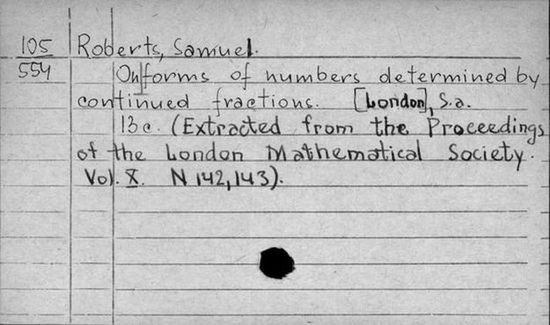 105 Roberts, Samuel.
554 On forms of numbers determined by
continued fractions. [London], s.a.
13 c. (Extracted from the Proceedings
of the London Mathematical Society.
Vol. X. N 142, 143).